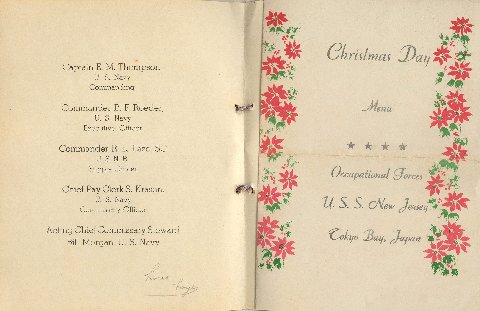 Captain E. M. Thompson
U. S. Navy
Commanding
Commander B. F. Roeder,
U. S. Navy
Executive Officer
Commander
U.S.N.R.
Supply Officer
Chief Pay Clerk S.
U. S. Navy
Commissary Officer
Acting Chief Commissary Steward
Morgan, U. S. Navy
Christmas Day
Menu
Occupational Forces
U. S. S. New Jersey
Tokyo Bay, Japan